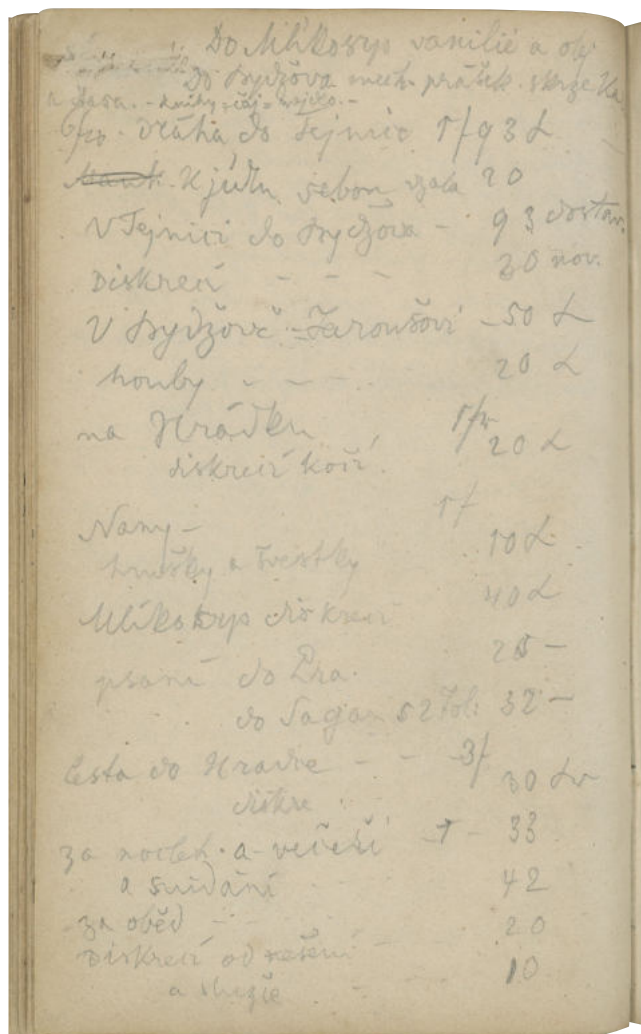 Do Mlíkosyp vanilie a olej
Do Bydžova mech. prášek. skrze
a Jasa. - knihy - čaj - mejdlo. -
dráha do Tejnic 1f 93 k
K jídlu sebou vzala 20
V Tejnici do Bydžova - 93 dostav.
Diskrecí - - - 30 nov.
V Bydžově - Jaroušovi - 50 k
houby - - - 20 k
na Hrádku 1f
diskrecí kočí. 20 k
Nany - 1f
hrušky a švestky 10 k
Mlíkosyp diskrecí 40 k
psaní do Pra. 25 -
do Sagan 52 Tol: 32 -
Cesta do Hradce - - 3f
diskre 30 kr
za nocleh. a večeři - 1 - 33
a snídání 42
za oběd - - 20
Diskrecí od nešení
a služce 10